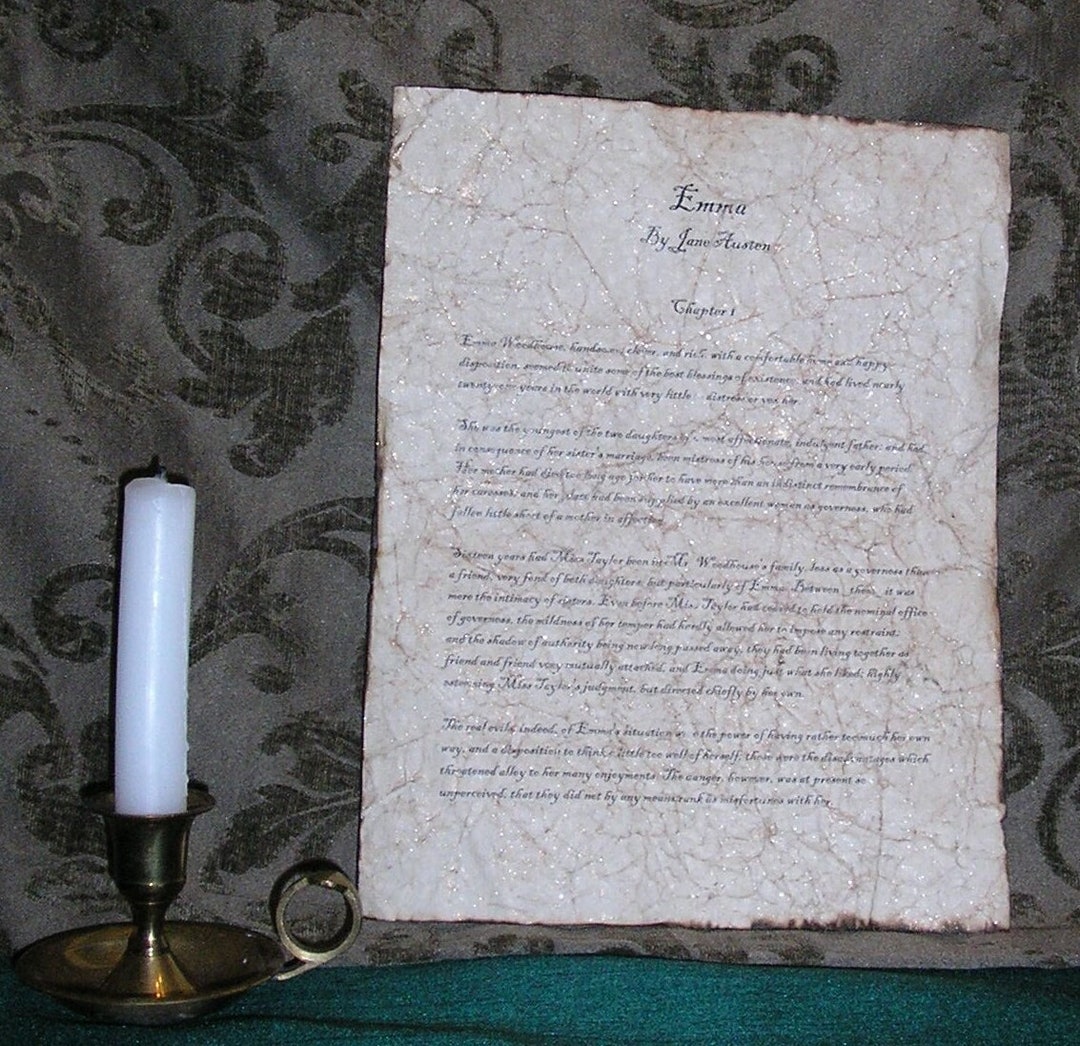 Emma
By Jane Austen
Chapter 1
Emma Woodhouse, handsome, clever, and rich, with a comfortable home and happy
disposition, seemed to unite some of the best blessings of existence; and had lived nearly
twenty-one years in the world with very little distress or vex her.
She was the youngest of the two daughters of a most affectionate, indulgent father; and had,
in consequence of her sister's marriage, been mistress of his house from a very early period.
Her mother had died too long ago for her to have more than an indistinct remembrance of
her caresses; and her place had been supplied by an excellent woman as governess, who had
fallen little short of a mother in affection.
Sixteen years had Miss Taylor been in Mr. Woodhouse's family, less as a governess than
a friend, very fond of both daughters, but particularly of Emma. Between them it was
more the intimacy of sisters. Even before Miss Taylor had ceased to hold the nominal office
of governess, the mildness of her temper had hardly allowed her to impose any restraint;
and the shadow of authority being now long passed away, they had been living together as
friend and friend very mutually attached, and Emma doing just what she liked; highly
esteeming Miss Taylor's judgment, but directed chiefly by her own.
The real evils, indeed, of Emma's situation were the power of having rather too much her own
way, and a disposition to think a little too well of herself; these were the disadvantages which
threatened alloy to her many enjoyments. The danger, however, was at present so
unperceived, that they did not by any means rank as misfortunes with her.